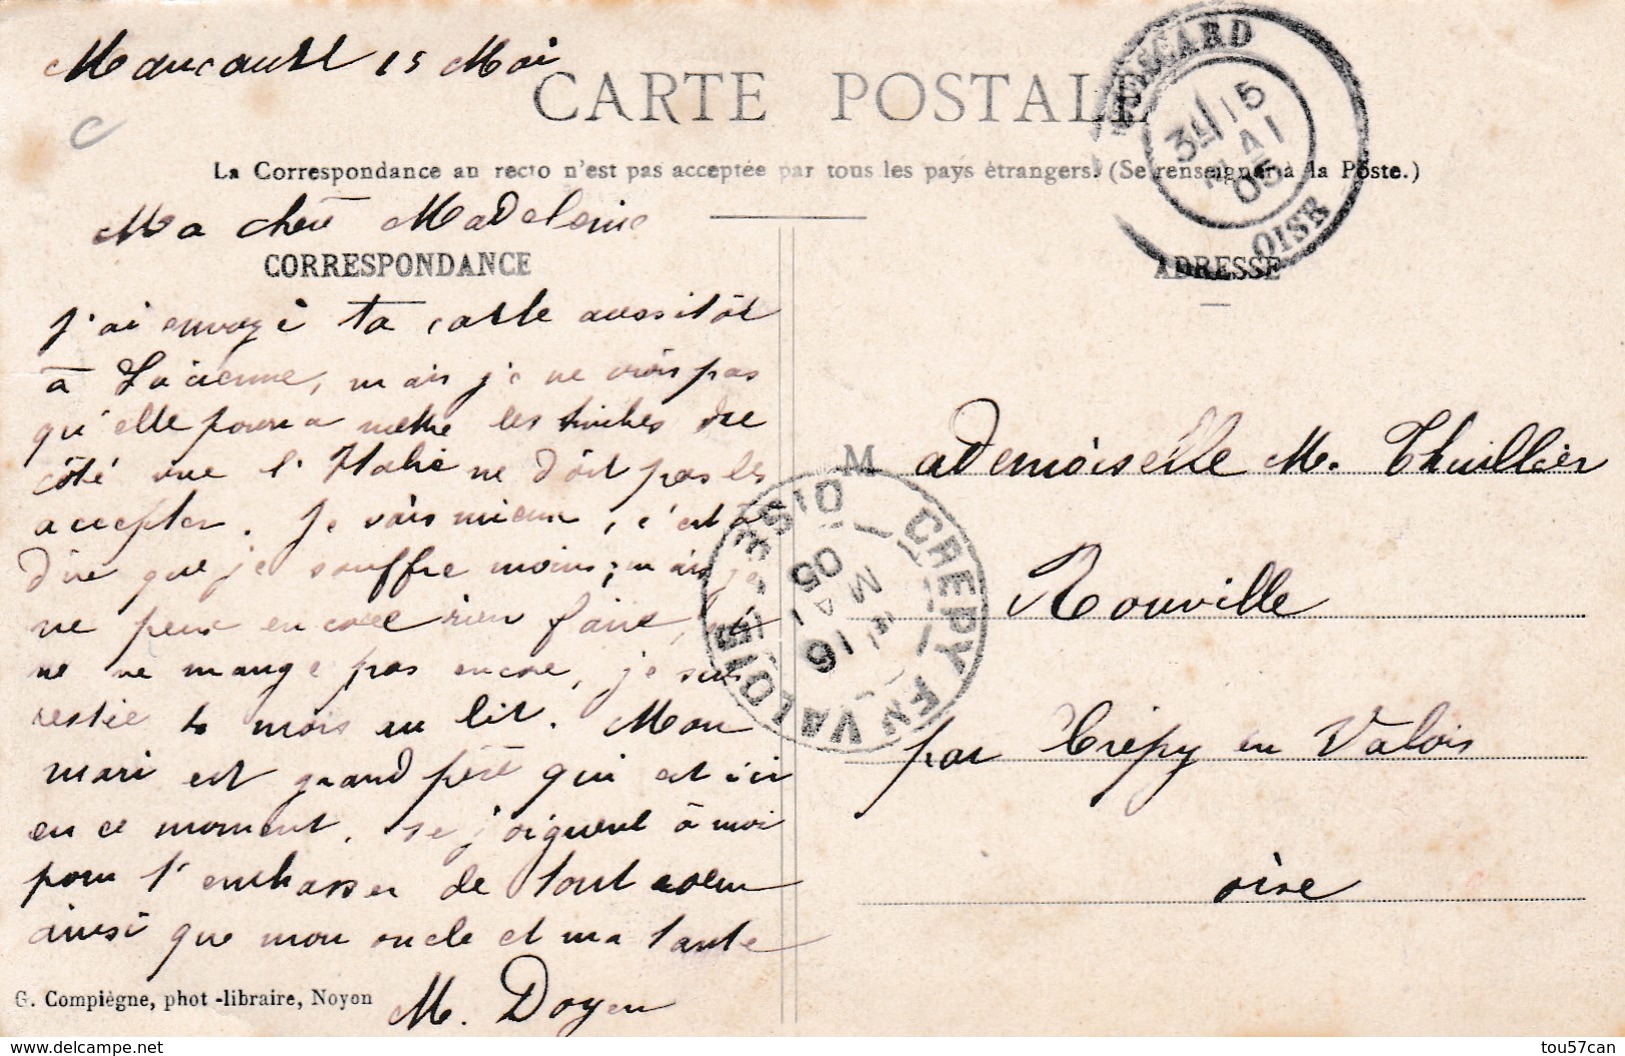 Maucourt 15 Mai
CARTE POSTALE
La Correspondance au recto n'est pas acceptée par tous les pays étrangers. (Se renseigner à la Poste.)
Ma chère Madeleine
CORRESPONDANCE
J'ai envoyé ta carte aussitôt
à Lucienne, mais je ne crois pas
qu'elle pourra mettre les timbres du
côté vue l'Italie ne doit pas les
accepter. Je vais mieux, c'est à
dire que je souffre moins; mais je
ne peux encore rien faire,
ne mange pas encore, je suis
restée mois au lit. Mon
mari et grand père qui est ici
en ce moment, se joignent à moi
pour t'embrasser de tout coeur
ainsi que mon oncle et ma tante
M. Doyen
G. Compiègne, phot-libraire, Noyon
GUISCARD
3E 15
MAI
05
OISE
ADRESSE
Mademoiselle M. Thuillier
Rouville
par Crépy en Valois
oise
CREPY EN VALOIS
OISE
16
MAI
05
delcampe.net
tou57can